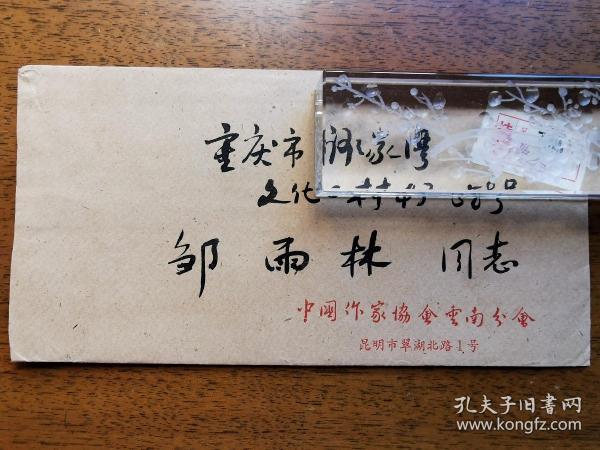 重庆市 家湾
文化 村 号
邹雨林 同志
中國作家協會雲南分會
昆明市翠湖北路1号
孔夫子旧书网
www.kongfz.com